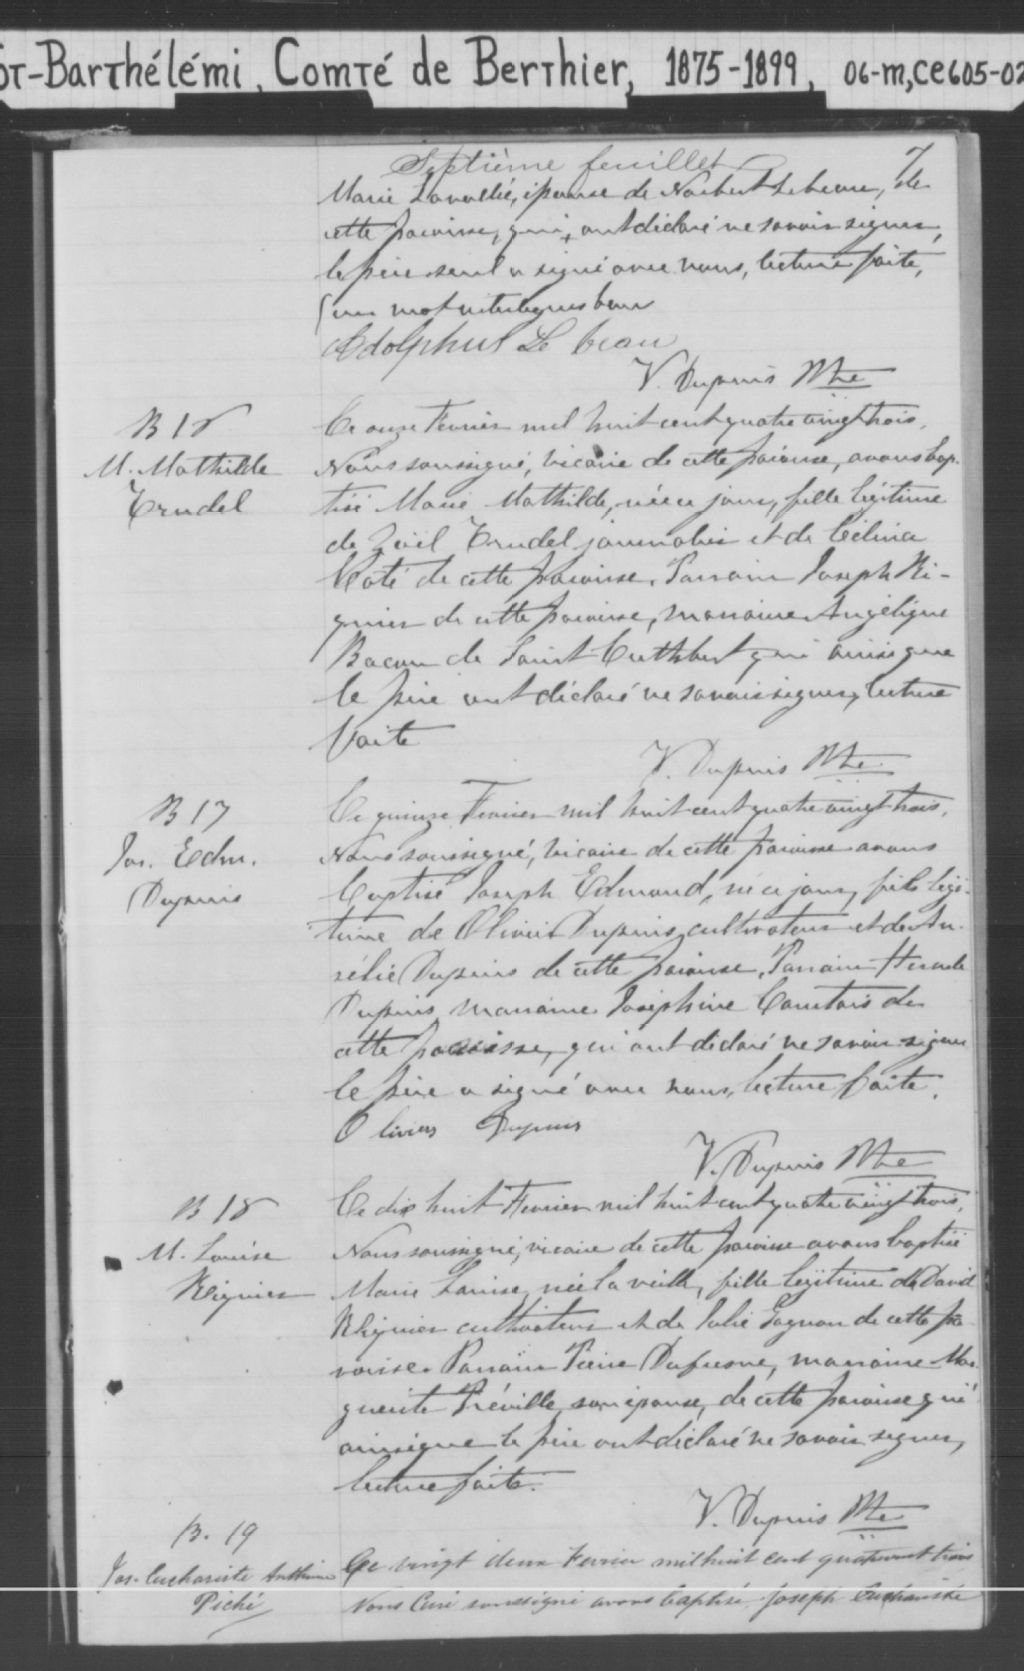 ST-Barthélémi, Comté de Berthier, 1875-1899, 06-M,CE605-02
Septième feuillet 7
Marie Lavallée, épouse de Norbert Lebeau, de
cette paroisse, qui, ont déclaré ne savoir signer,
le père seul a signé avec nous, lecture faite,
un mot interligné bon
Adolphus Le beau
V. Dupuis Ptre
B 16
M. Mathilde
Trudel
Ce onze Fevrier mil huit cent quatre vingt trois,
Nous soussigné, vicaire de cette paroisse, avons bap-
tisé Marie Mathilde, née ce jour, fille légitime
de Zoël Trudel journalier et de Célina
Coté de cette paroisse. Parrain Joseph Ri-
gnier de cette paroisse, marraine Angélique
Bacon de Saint Cuthbert qui ainsi que
le père ont déclaré ne savoir signer, lecture
faite
V. Dupuis Ptre
B 17
Jos. Edm.
Dupuis
Ce quinze Fevrier mil huit cent quatre vingt trois,
Nous soussigné, vicaire de cette paroisse avons
baptisé Joseph Edmond, né ce jour, fils légi-
time de Olivier Dupuis cultivateur et de Au-
rélie Dupuis de cette paroisse. Parrain
Dupuis marraine Joséphine Comtois de
cette paroisse, qui ont déclaré ne savoir signer
le père a signé avec nous, lecture faite.
Olivier Dupuis
V. Dupuis Ptre
B 18
M. Louise
Rignier
Ce dix huit Fevrier mil huit cent quatre vingt trois,
Nous soussigné, vicaire de cette paroisse avons baptisé
Marie Louise, née la veille, fille légitime de David
Rignier cultivateur et de Julie Gagnon de cette pa-
roisse. Parrain Pierre Dufresne, marraine Mar-
guerite Préville, son épouse, de cette paroisse qui
ainsi que le père ont déclaré ne savoir signer,
lecture faite.
V. Dupuis Ptre
B. 19
Jos. Euchariste Anthime
Piché
Ce vingt deux Fevrier mil huit cent quatrevingt trois
Nous Curé soussigné avons baptisé Joseph Euchariste